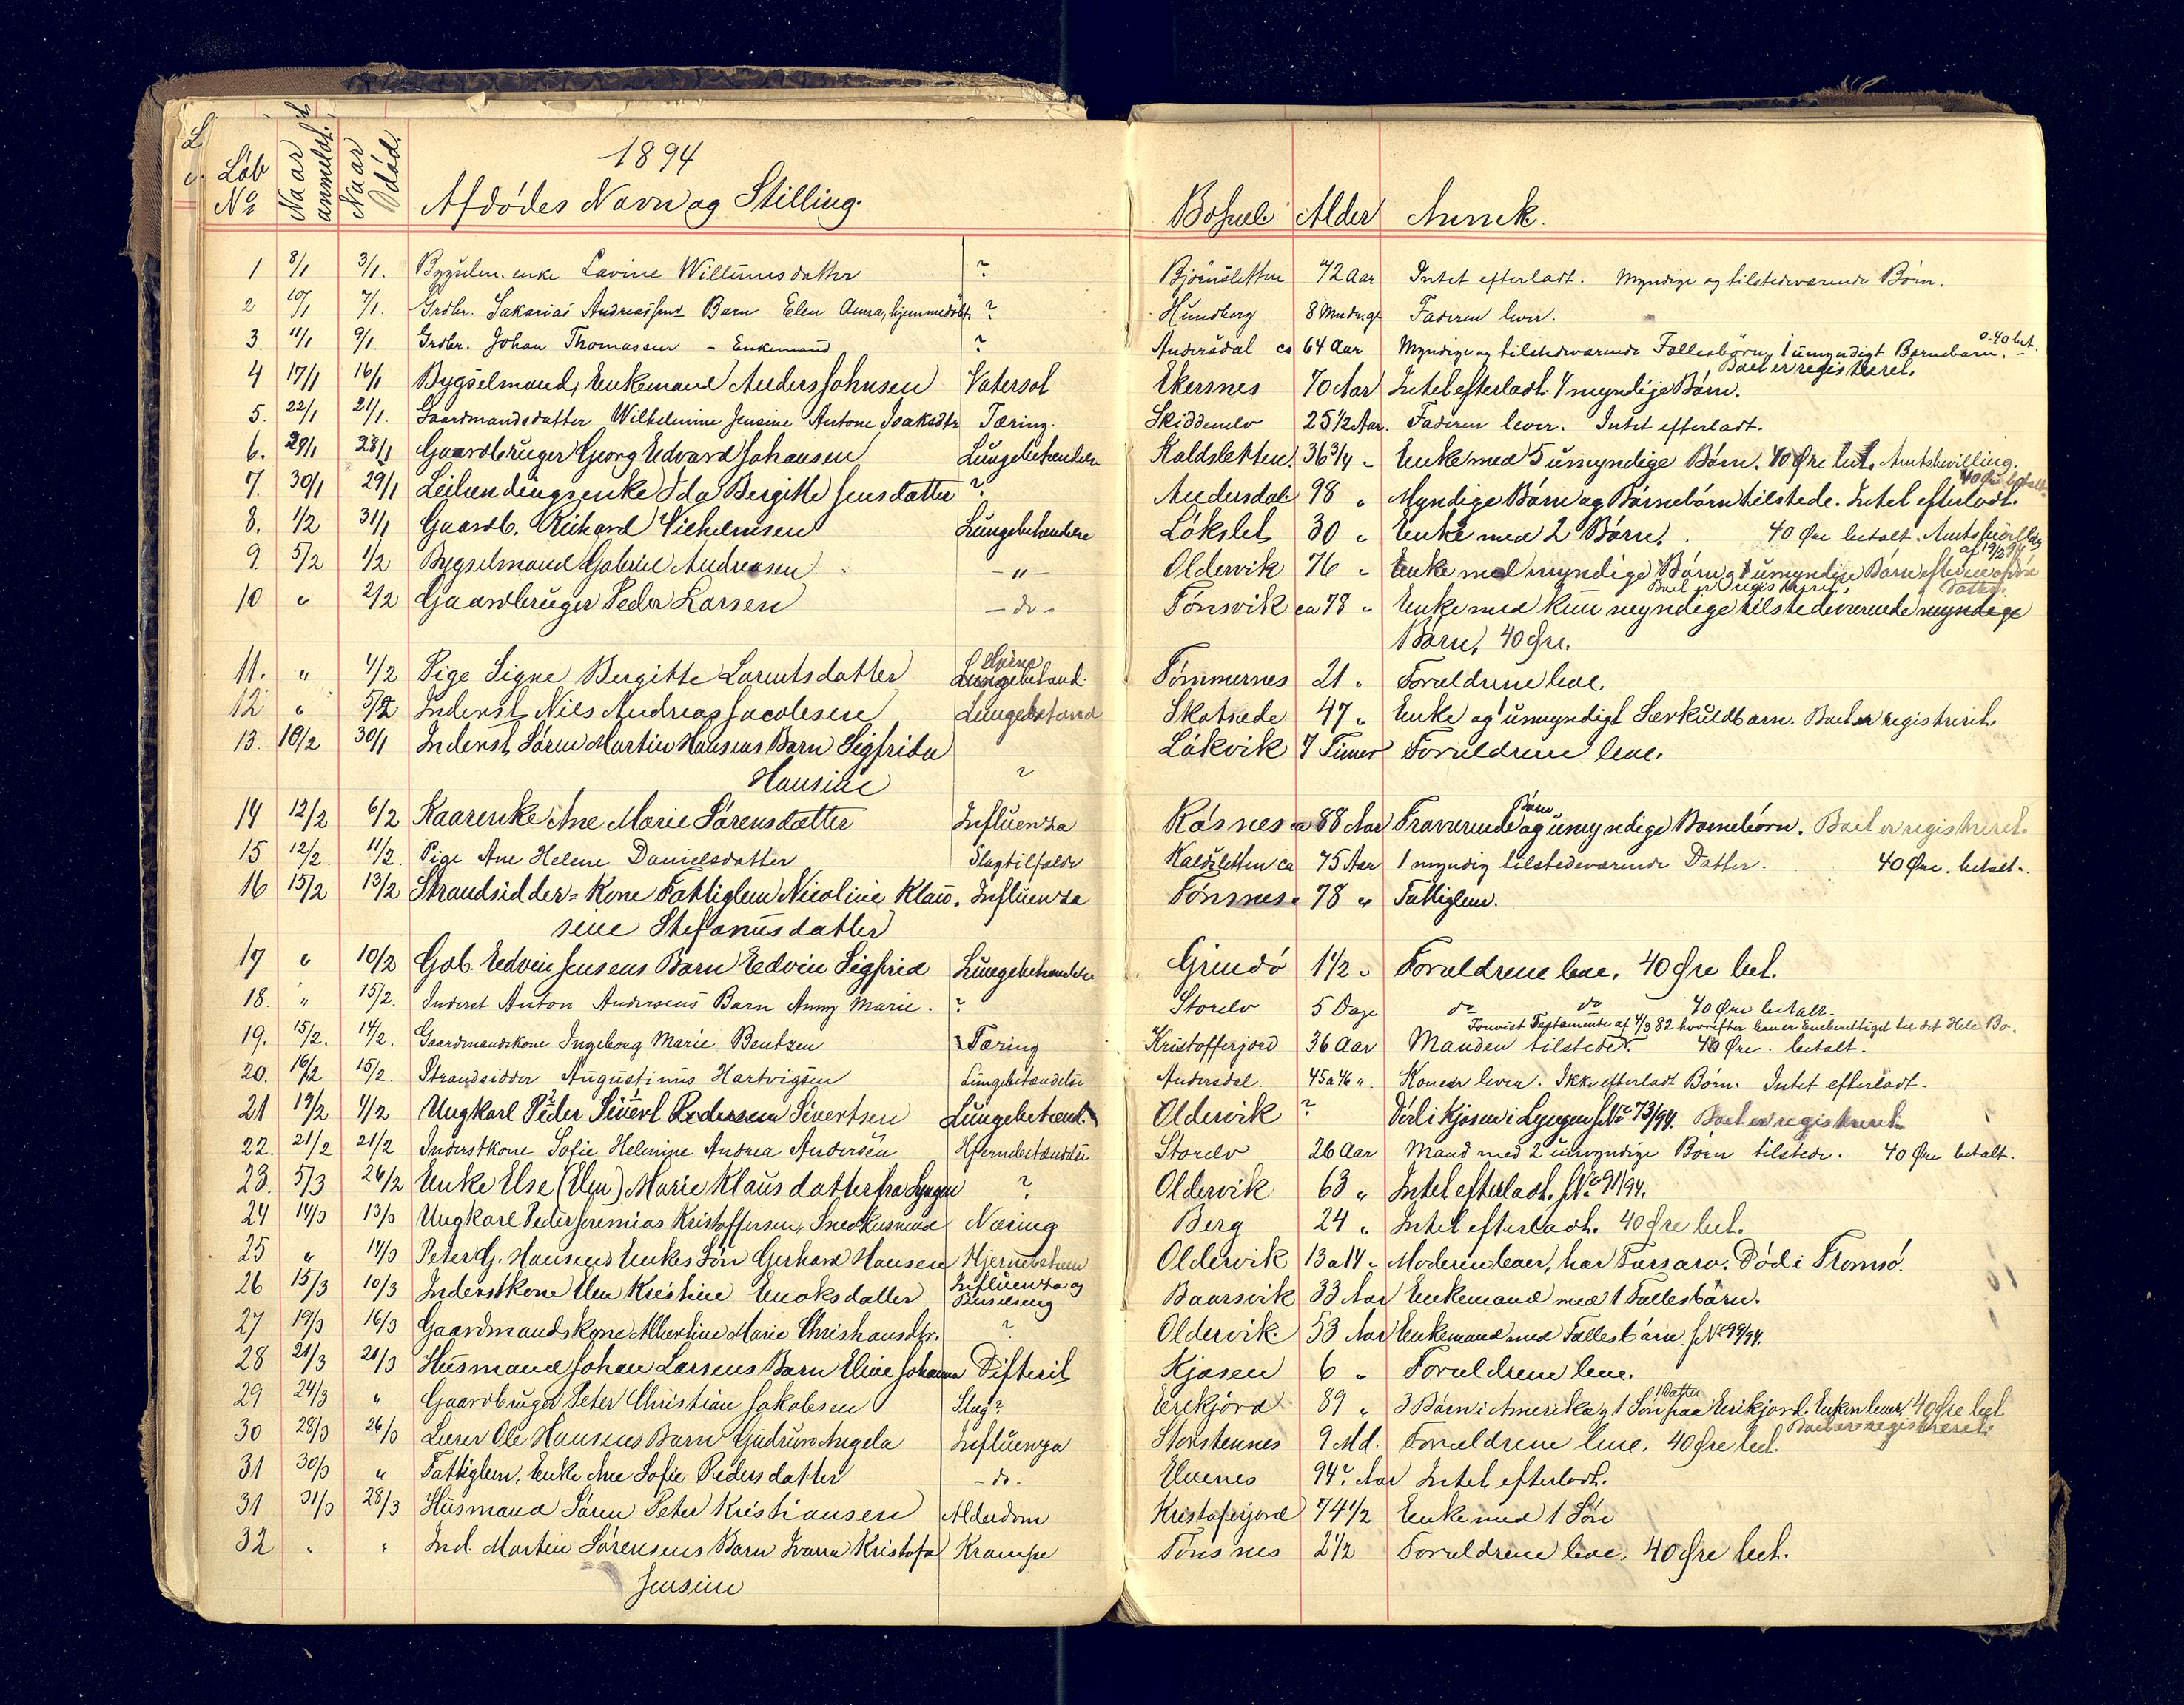 1894
Løb No Naar anmeldt. Naar død. Afdødes Navn og Stilling. Bosted. Alder Anmk.
1 8/1 3/1. Bygselm. enke Lavine Willumsdatter ? Bjørnsletten 72 Aar Intet efterladt. Myndige og tilstedeværende Børn.
2 10/1 7/1. Grdbr. Sakarias Andreassens Barn Elen Anna, hjemmedøbt ? Hundberg 8 Mndr. gl Faderen lever.
3. 11/1 9/1. Grdbr. Johan Thomassen - Enkemand ? Andersdal ca 64 Aar Myndige og tilstedeværende Fællesbørn, 1 umyndigt Barnebarn. 0.40 bet.
Boet er registreret.
4 17/1 16/1 Bygselmand, Enkemand Anders Johnsen Vatersot Ekersnes 70 Aar Intet efterladt. 4 myndige Børn.
5. 22/1 21/1. Gaardmandsdatter Wilhelmine Jensine Antone Isaksdtr Tæring. Skiddenelv 25 1/2 Aar. Faderen lever. Intet efterladt.
6. 29/1 28/1 Gaardbruger Georg Edvard Johansen Lungebetændelse Kaldsletten. 36 3/4 " Enke med 5 umyndige Børn. 40 Øre bet. Amtsbevilling.
40 Øre betalt
7. 30/1 29/1 Leilendingsenke Ida Bergitte Jensdatter ? Andersdal 98 " Myndige Børn og Børnebørn tilstede. Intet efterladt.
8. 1/2 31/1 Gaardb. Richard Vilhelmsen Lungebetændelse Løkslet 30 " Enke med 2 Børn. 40 Øre betalt. Amtsbevillg
af 19/2 94
9. 5/2 1/2 Bygselmand Gabriel Andreasen - " - Oldervik 76 " Enke med myndige Børn og 1 umyndige Børn efter en afdød
Boet er registreret. Datter.
10 " 2/2 Gaardbruger Peder Larsen - do - Tønsvik ca 78 " Enke med kun myndige tilstedeværende myndige
Børn, 40 Øre.
11. " 4/2 Pige Signe Bergitte Lorntsdatter Hjerne Lungebetænd. Tømmernes 21 " Forældrene leve.
12 " 5/2 Inderst Nils Andreas Jacobsen Lungebetænd Skotsæde 47 " Enke og 1 umyndigt Særkuldbarn. Boet er registreret.
13. 10/2 30/1 Inderst Søren Martin Hansens Barn Sigfrida Løkvik 7 Timer Forældrene leve.
Hansine ?
14 12/2 6/2 Kaarenke Ane Marie Sørensdatter Influenza Røsnes ca 88 Aar Fraværende Børn og umyndige Børnebørn. Boet er registreret.
15 12/2. 11/2. Pige Ane Helene Danielsdatter Slagtilfælde Kaldsletten ca 75 Aar 1 myndig tilstedeværende Datter. 40 Øre. betalt.
16 15/2 13/2 Strandsidder-Kone Fattiglem Nicoline Klau- Influenza Tønsnes 78 " Fattiglem.
sine Stefanusdatter
17 " 10/2 Gab. Edvin Jensens Barn Edvin Sigfrid Lungebetændelse Grindø 1 1/2 " Forældrene leve. 40 Øre bet.
18. " 15/2. Inderst Anton Andersens Barn Anny Marie. ? Storelv 5 Dage do do 40 Øre betalt.
Forevist Testamente af 4/3 82 hvorefter han er Eneberettiget til det Hele Bo.
19. 15/2. 14/2. Gaardmandskone Ingeborg Marie Bentzen Tæring Kristofferjord 36 Aar Manden tilstede. 40 Øre. betalt.
20. 16/2 15/2. Strandsidder Augustinus Hartvigsen Lungebetændelse Andersdal. 45 a 46 " Konen lever. Ikke efterladt Børn. Intet efterladt.
21 19/2 1/2 Ungkarl Peder Sivert Pedersen Sivertsen Lungebetænd. Oldervik ? Død i Kjosen i Lyngen No 73/94. Boet er registreret
22. 21/2 21/2 Inderstkone Sofie Helmine Andrea Andersen Hjernebetændelse Storelv 26 Aar Mand med 2 umyndige Børn tilstede. 40 Øre betalt.
23. 5/3 26/2 Enke Else (Elen) Marie Klausdatter fra Lyngen ? Oldervik 63 " Intet efterladt. No 91/94.
24 14/3 13/3 Ungkarl Peder Jeremias Kristoffersen, Snedkersvend Næring Berg 24 " Intet efterladt. 40 Øre bet.
25 " 14/3 Peter G. Hansens Enkes Søn Gerhard Hansen Hjernebetænd Oldervik 13 a 14 " Moderen lever, har Farsarv. Død i Tromsø.
26 15/3 10/3 Inderstkone Elen Kristine Enoksdatter Influenza og Barselseng Baarsvik 33 Aar Enkemand med 1 Fællesbarn.
27 19/3 16/3 Gaardmandskone Albertine Marie Christiansdtr. ? Oldervik. 53 Aar Enkemand med Fællesbørn. No 99/94.
28 21/3 21/3 Husmand Johan Larsens Barn Eline Johanna Difterit Kjosen 6 " Forældrene leve.
29 24/3 " Gaardbruger Peter Christian Jakobsen Slag? Erikjord 89 " 3 Børn i Amerika og 1 Søn 1 Datter paa Erikjord. Enken lever, 40 Øre bet
Boet er registreret.
30 28/3 26/3 Lærer Ole Hansens Barn Gudrun Angela Influenza Storstennes 9 Md. Forældrene leve. 40 Øre bet.
31 30/3 " Fattiglem, Enke Ane Sofie Pedersdatter - do. Elvenes 94? Aar Intet efterladt.
31 31/3 28/3 Husmand Søren Peter Kristiansen Alderdom Kristoferjord 74 1/2 Enke med 1 Søn
32 " " Ind. Martin Sørensens Barn Ivarra Kristofa Krampe Tønsnes 2 1/2 Forældrene leve. 40 Øre bet.
Jensine